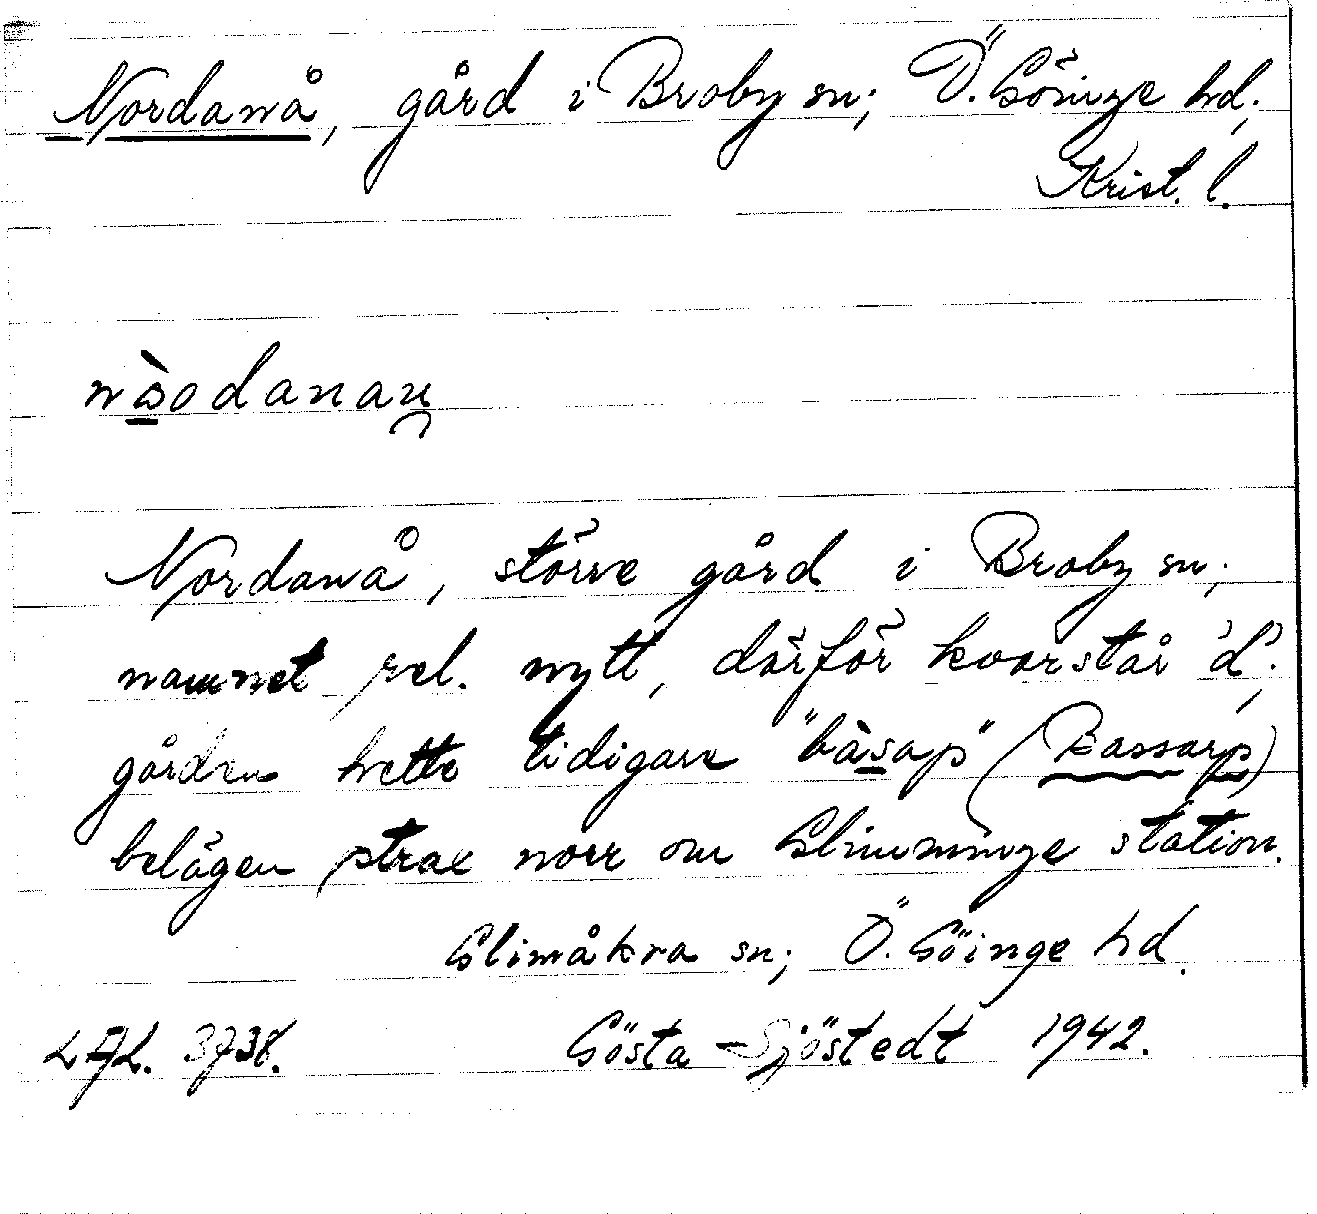 Nordanå, gård i Broby sn; Ö. Göinge hd,
Krist. l.
nàodanau̯
Nordanå, större gård i Broby sn;
namnet rel. nytt, därför kvarstår 'd';
gården hette tidigare "bàsap" (Bassarp)
belägen strax norr om Glimminge station.
Glimåkra sn; Ö. Göinge hd.
LAL. 3738. Gösta Sjöstedt 1942.